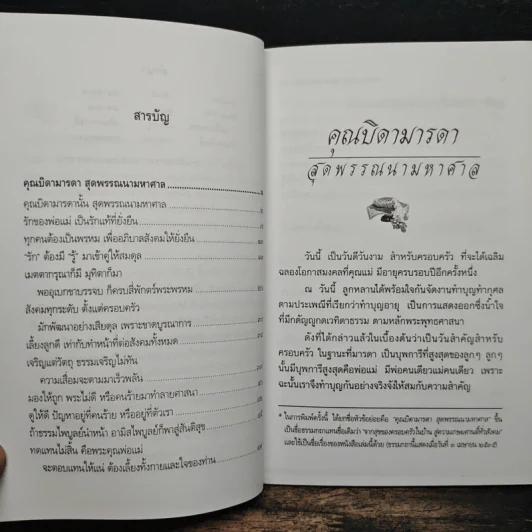 สารบัญ
คุณบิดามารดา สุดพรรณนามหาศาล
คุณบิดามารดานั้น สุดพรรณนามหาศาล
รักของพ่อแม่ เป็นรักแท้ที่ยั่งยืน
ทุกคนต้องเป็นพรหม เพื่ออภิบาลสังคมให้ยั่งยืน
"รัก" ต้องมี "รู้" มาเข้าคู่ให้สมดุล
เมตตากรุณาก็มี มุทิตาก็มา
พออุเบกขาบรรจบ ก็ครบสี่พักตร์พระพรหม
สังคมทุกระดับ ตั้งแต่ครอบครัว
มักพัฒนาอย่างเสียดุล เพราะขาดบูรณาการ
เลี้ยงลูกดี เท่ากับทำหน้าที่ต่อสังคมทั้งหมด
เจริญแต่วัตถุ ธรรมเจริญไม่ทัน
ความเสื่อมจะตามมาเร็วพลัน
มองให้ถูก พระไม่ดี หรือคนร้ายมาทำลายศาสนา
ดูให้ดี ปัญหาอยู่ที่คนร้าย หรืออยู่ที่ตัวเรา
ถ้าธรรมไพบูลย์นำหน้า อามิสไพบูลย์ก็พาสู่สันติสุข
ทดแทนไม่สิ้น คือพระคุณพ่อแม่
จะตอบแทนให้แน่ ต้องเลี้ยงทั้งกายและใจของท่าน
คุณบิดามารดา
สุดพรรณนามหาศาล
วันนี้ เป็นวันดีวันงาม สำหรับครอบครัว ที่จะได้เฉลิม
ฉลองโอกาสมงคลที่คุณแม่ มีอายุครบรอบปีอีกครั้งหนึ่ง
ณ วันนี้ ลูกหลานได้พร้อมใจกันจัดงานทำบุญทำกุศล
ตามประเพณีที่เรียกว่าทำบุญอายุ เป็นการแสดงออกซึ่งน้ำใจ
ที่มีกตัญญูกตเวทิตาธรรม ตามหลักพระพุทธศาสนา
ดังที่ได้กล่าวแล้วในเบื้องต้นว่าเป็นวันสำคัญสำหรับ
ครอบครัว ในฐานะที่มารดา เป็นบุพการีที่สูงสุดของลูกๆ ลูกๆ
นั้นมีบุพการีสูงสุดคือพ่อแม่ มีพ่อคนเดียวแม่คนเดียว เพราะ
ฉะนั้นเราจึงทำบุญกันอย่างจริงจังให้สมกับความสำคัญ
* ในการพิมพ์ครั้งนี้ ได้ยกชื่อหัวข้อย่อยคือ "คุณบิดามารดา สุดพรรณนามหาศาล" ขึ้น
เป็นชื่อธรรมกถาแทนชื่อเดิมว่า "จากสุขของครอบครัวในบ้าน สู่ความเกษมศานติ์ทั่วสังคม"
และใช้เป็นชื่อเรื่องของหนังสือเล่มนี้ด้วย (ธรรมกถานี้แสดงเมื่อวันที่ ๓ เมษายน